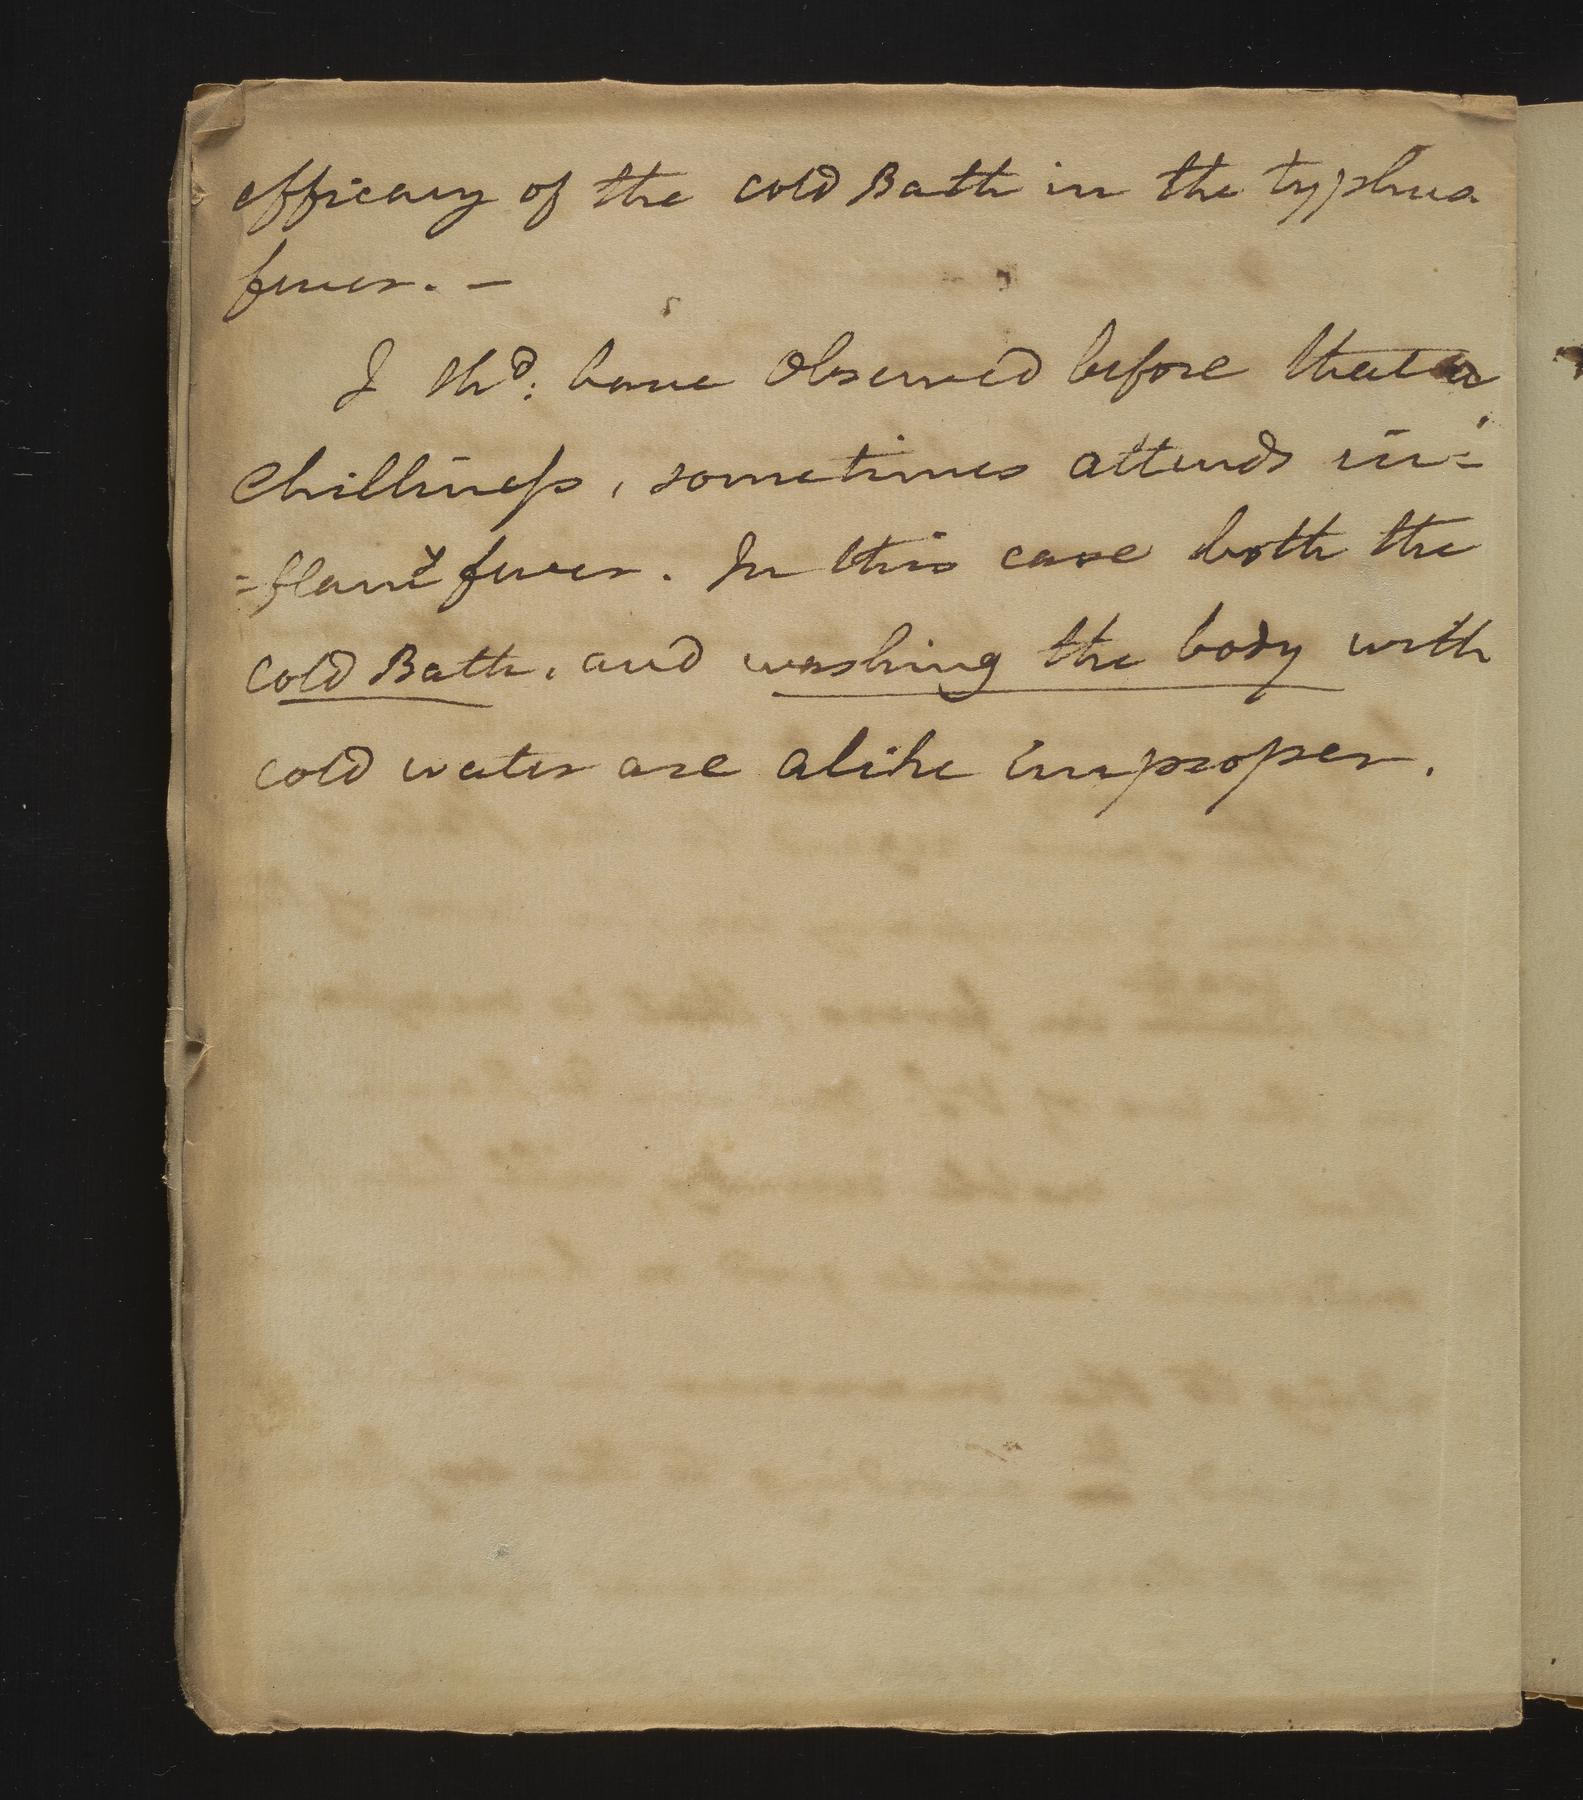 efficacy of the cold Bath in the typhus
fever. –
I shd: have Observed before that a
Chilliness, sometimes attends in=
=flamy fever. In this case both the
cold Bath, and washing the body with
cold water are alike improper.